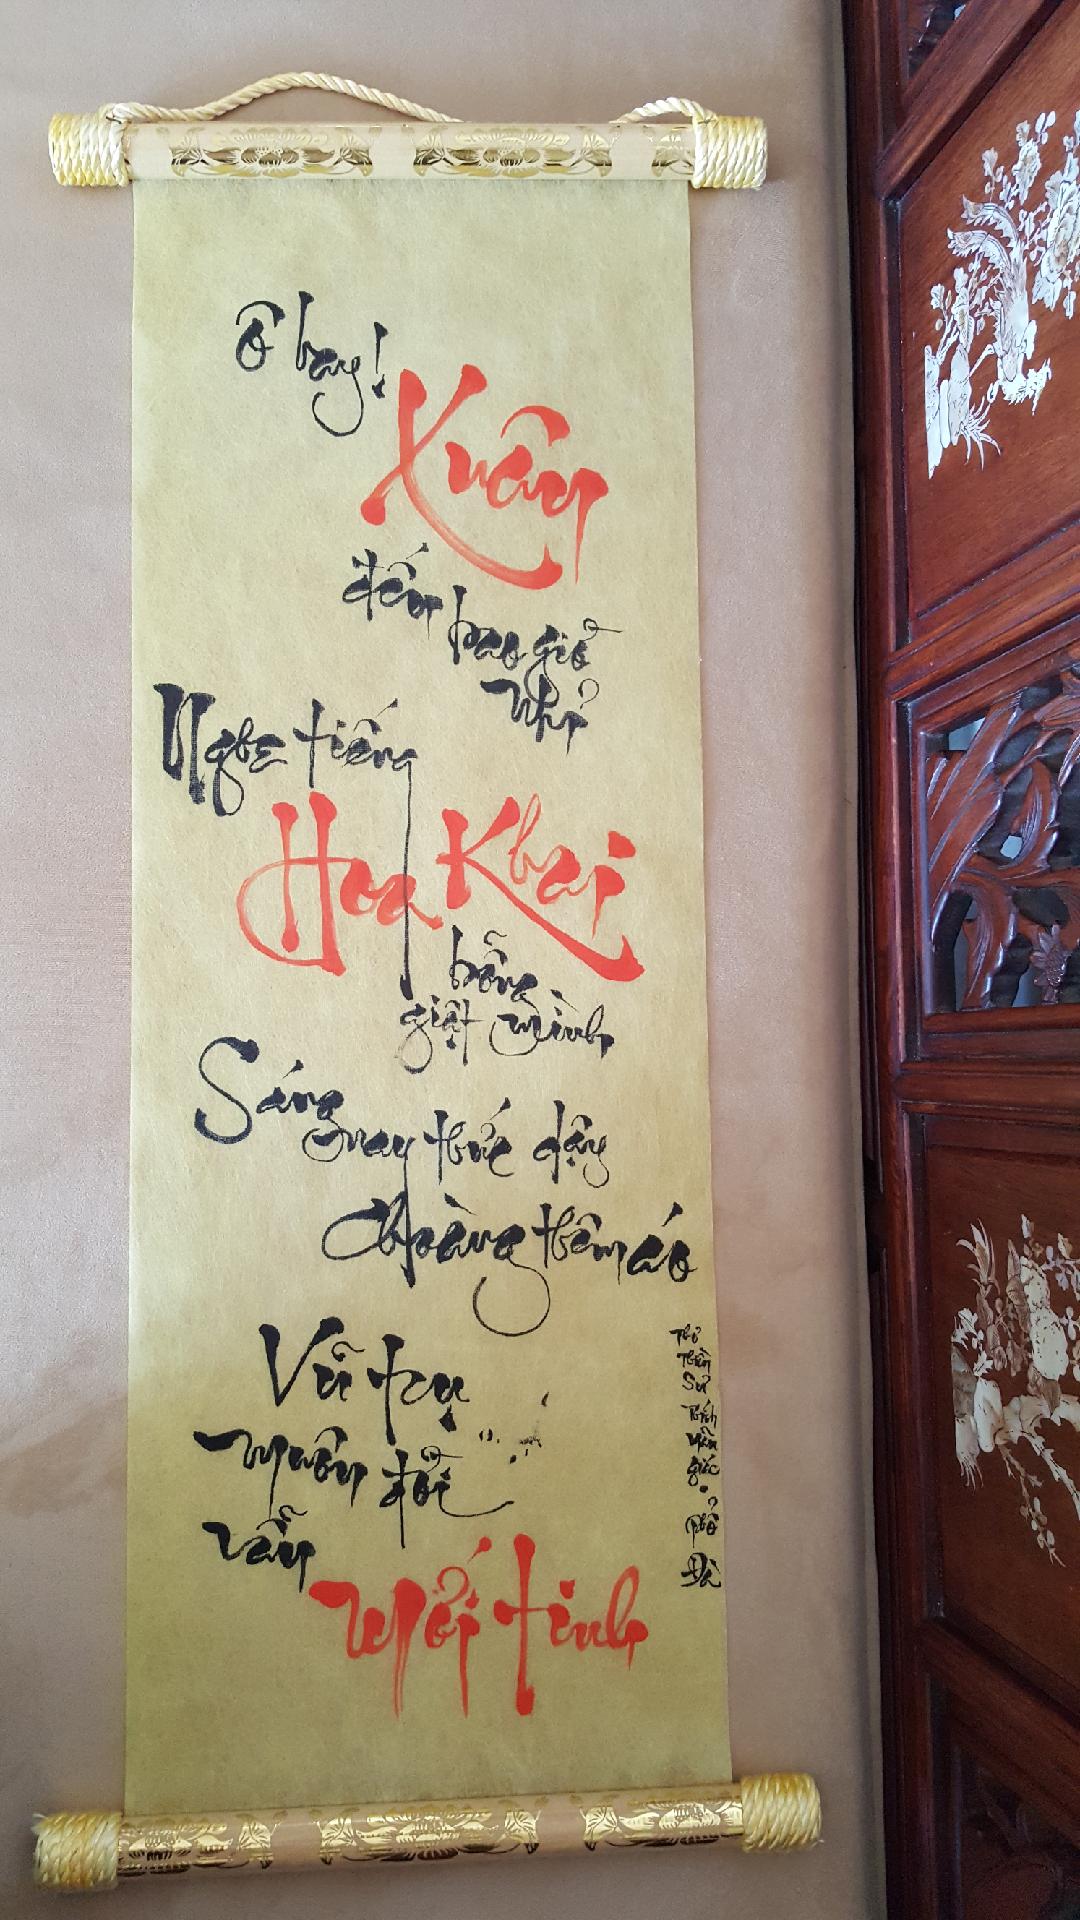 Ô hay!
Xuân
đến bao giờ
nhỉ
Nghe tiếng
Hoa Khai
bỗng
giật mình
Sáng
nay thức dậy
Choàng thêm áo
Vũ trụ
muôn đổi
vẫn
Mới tinh
Thơ
Thiền
Sư
Thích
Mãn
Giác
Phổ
Đà